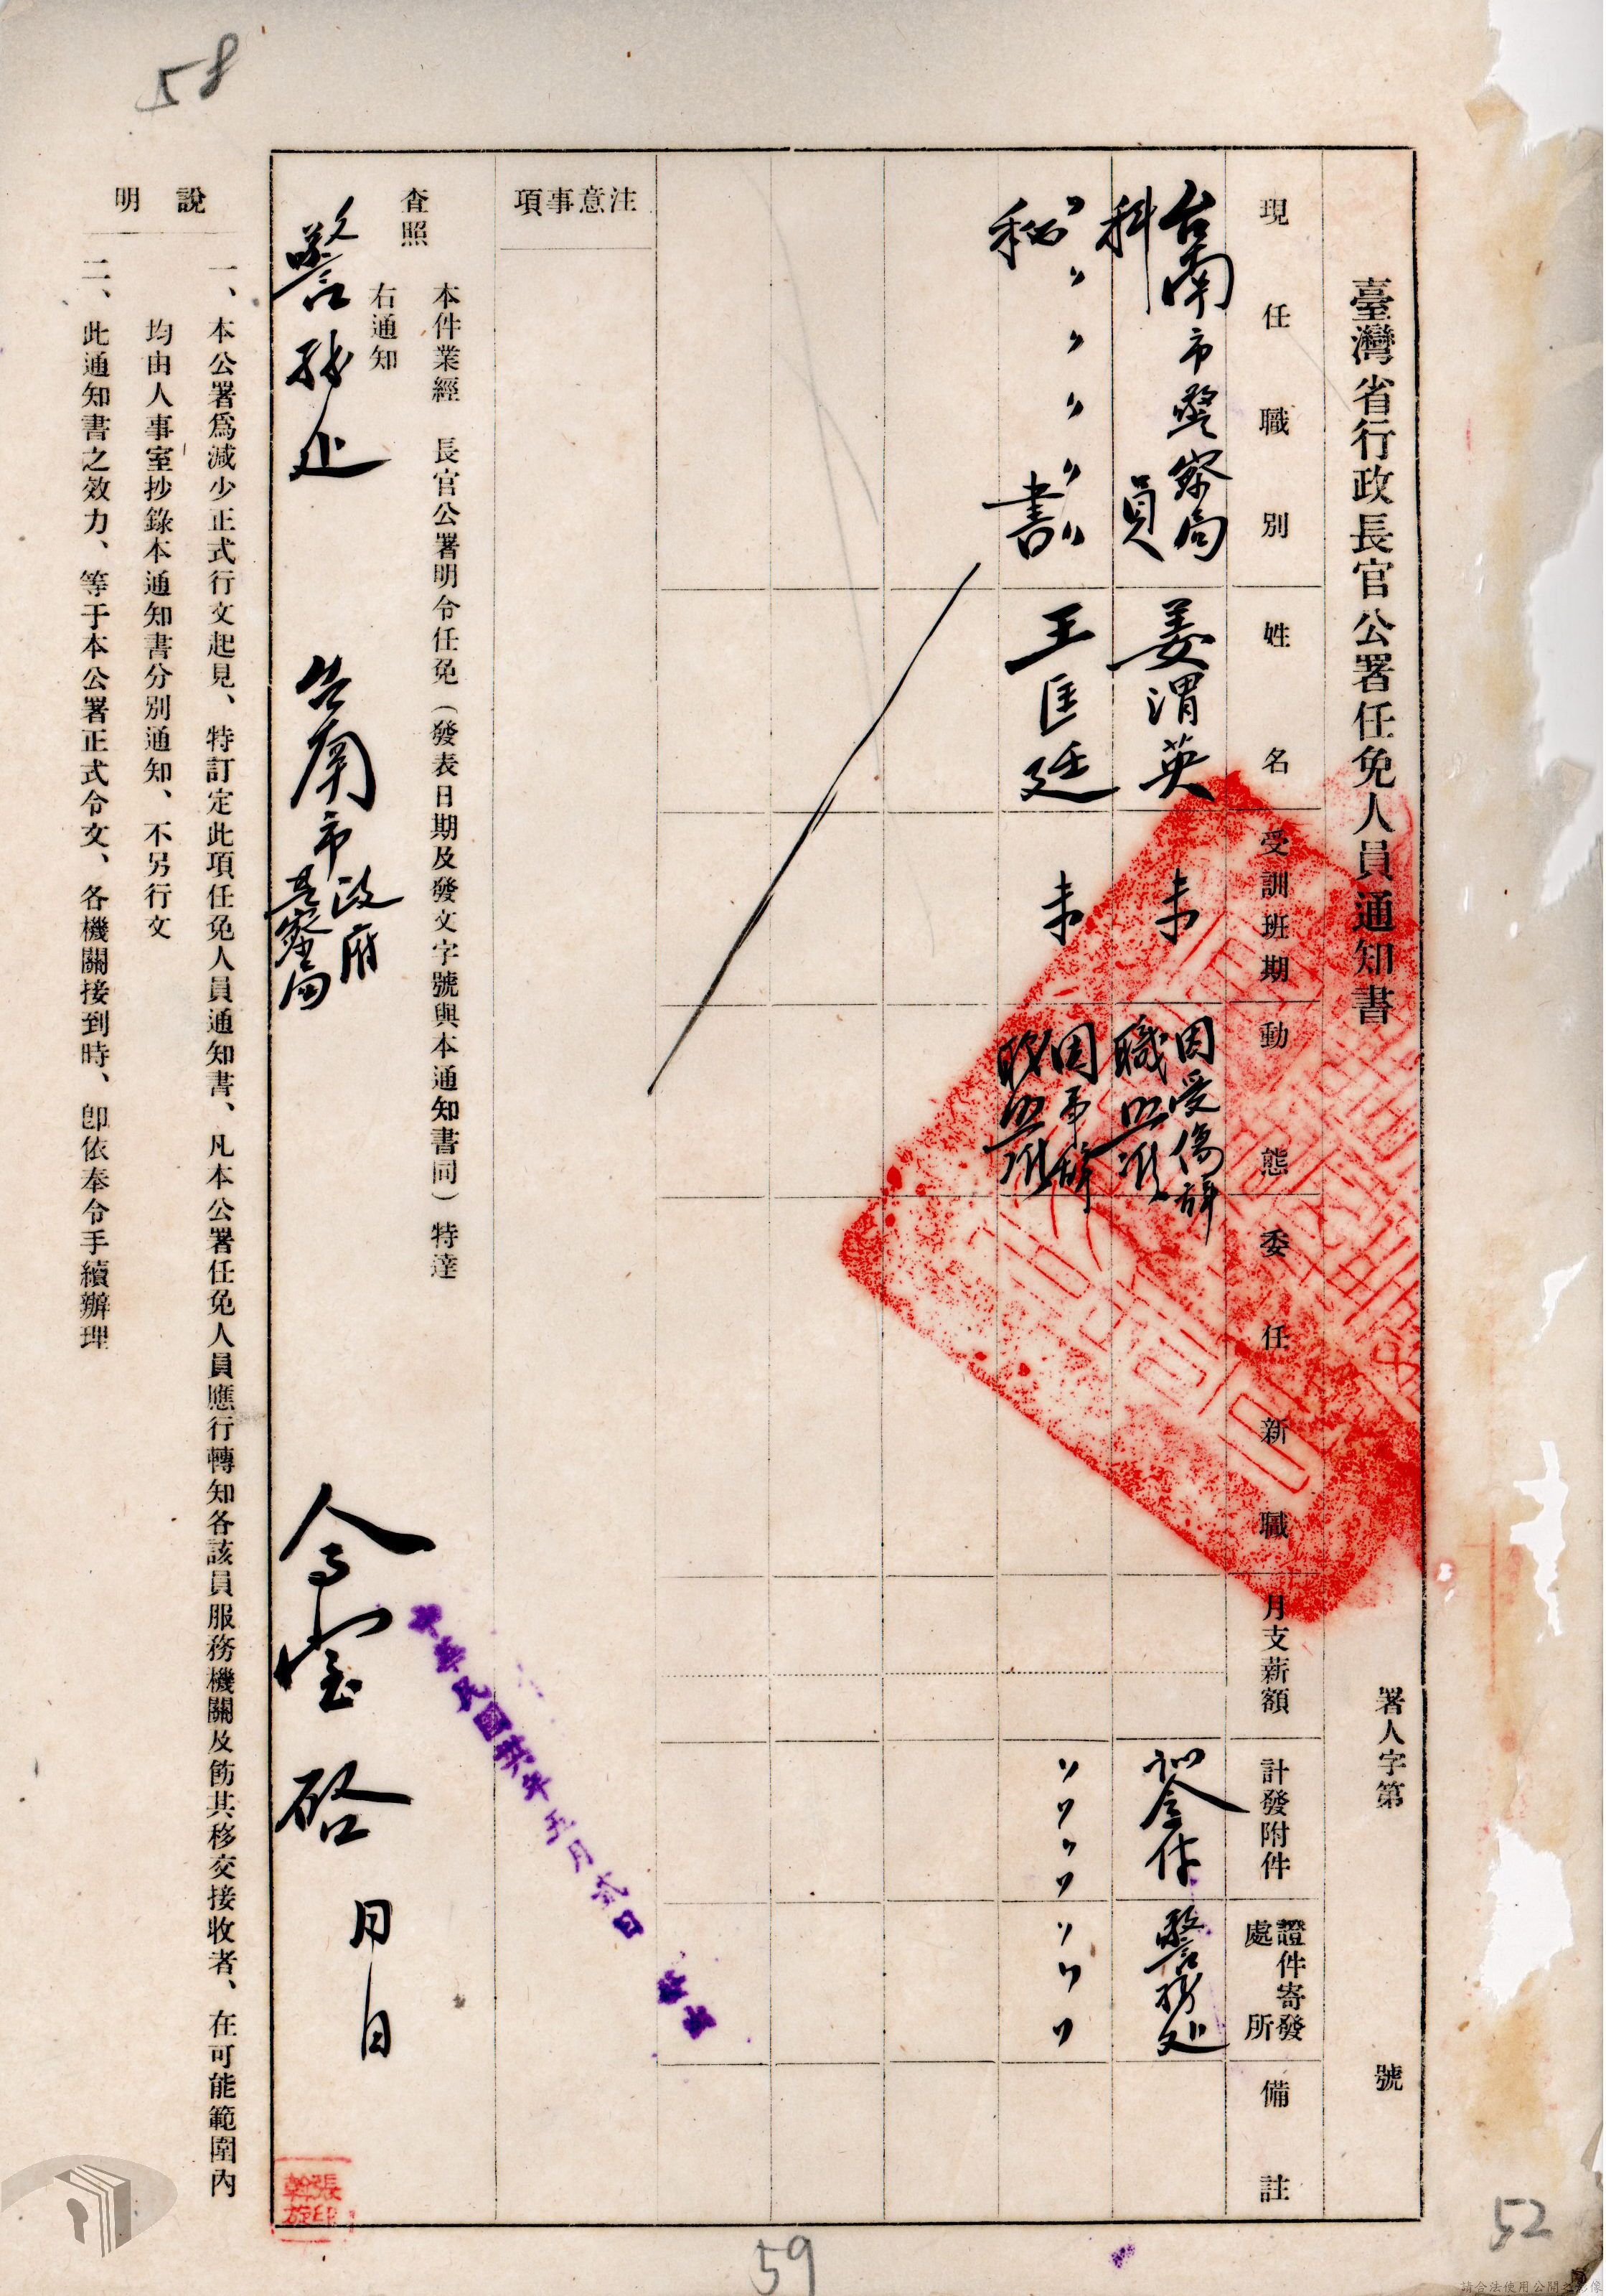 58
臺灣省行政長官公署任免人員通知書
署人字第　號
現任職別
姓名
受訓班期
動態
委任新職
月支薪額
計發附件
證件寄發處所
備註
台南市警察局
科員
姜渭英
未
因受傷辭
職照准
令件
警務处
〃〃〃〃〃〃
秘書
王匡廷
未
因事辭
职照准
〃〃〃〃
〃〃〃
注意事項
本件業經　長官公署明令任免（發表日期及發文字號與本通知書同）特達
查照
右通知
警務处
台南市政府
警察局
人事室 啓
月日
中華民國卅六年五月弍日
張印
說明
一、本公署爲減少正式行文起見、特訂定此項任免人員通知書、凡本公署任免人員應行轉知各該員服務機關及飭其移交接收者、在可能範圍內
均由人事室抄錄本通知書分別通知、不另行文
二、此通知書之效力、等于本公署正式令文、各機關接到時、卽依奉令手續辦理
59
52
請合法使用公開之影像